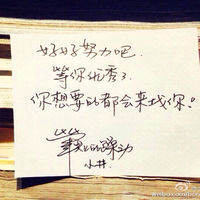 好好努力吧.
等你优秀了
你想要的都会来找你!
小井.